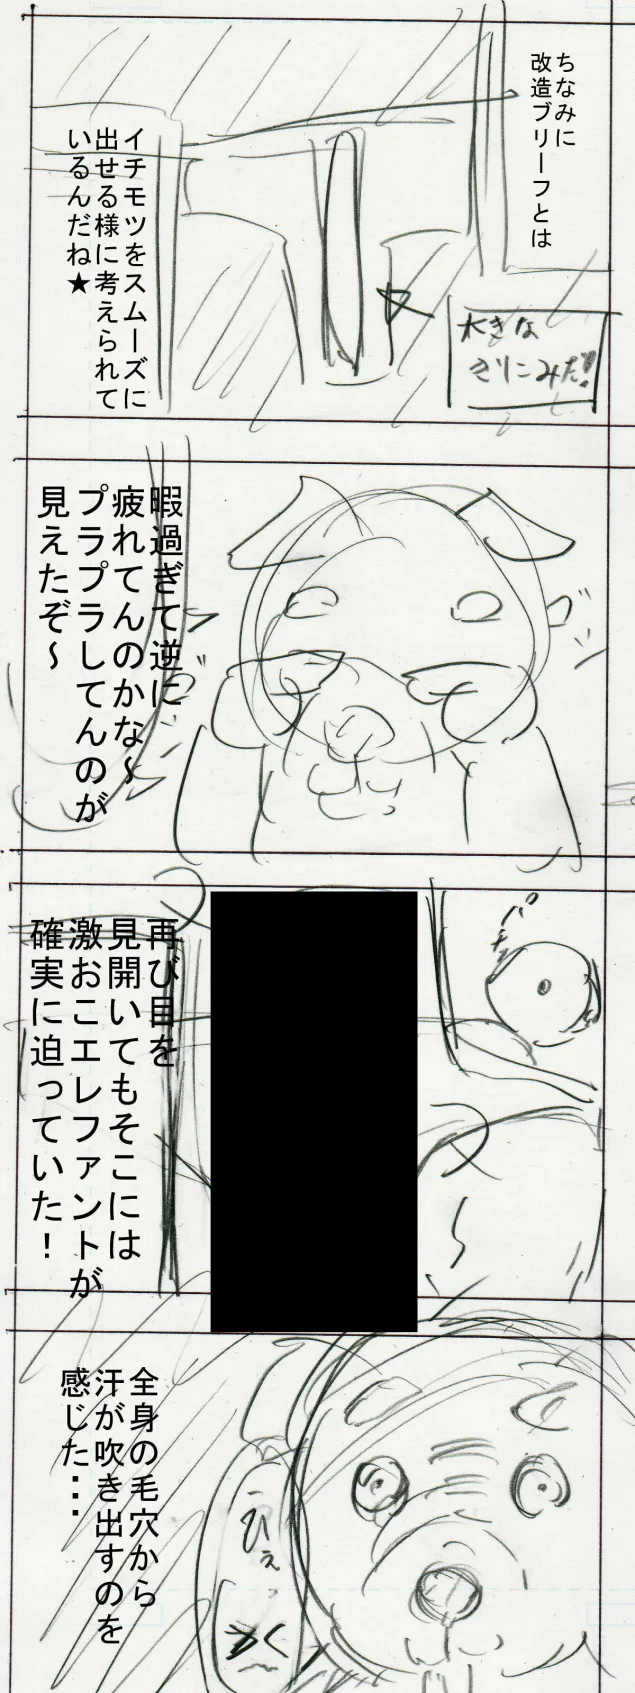 ちなみに
改造ブリーフとは
イチモツをスムーズに
出せる様に考えられて
いるんだね★
大きな
きりこみだ!
暇過ぎて逆に
疲れてんのかな～
プラプラしてんのが
見えたぞ～
パチッ
再び目を
見開いてもそこには
激おこエレファントが
確実に迫っていた!
全身の毛穴から
汗が吹き出すのを
感じた・・・
ひえっ